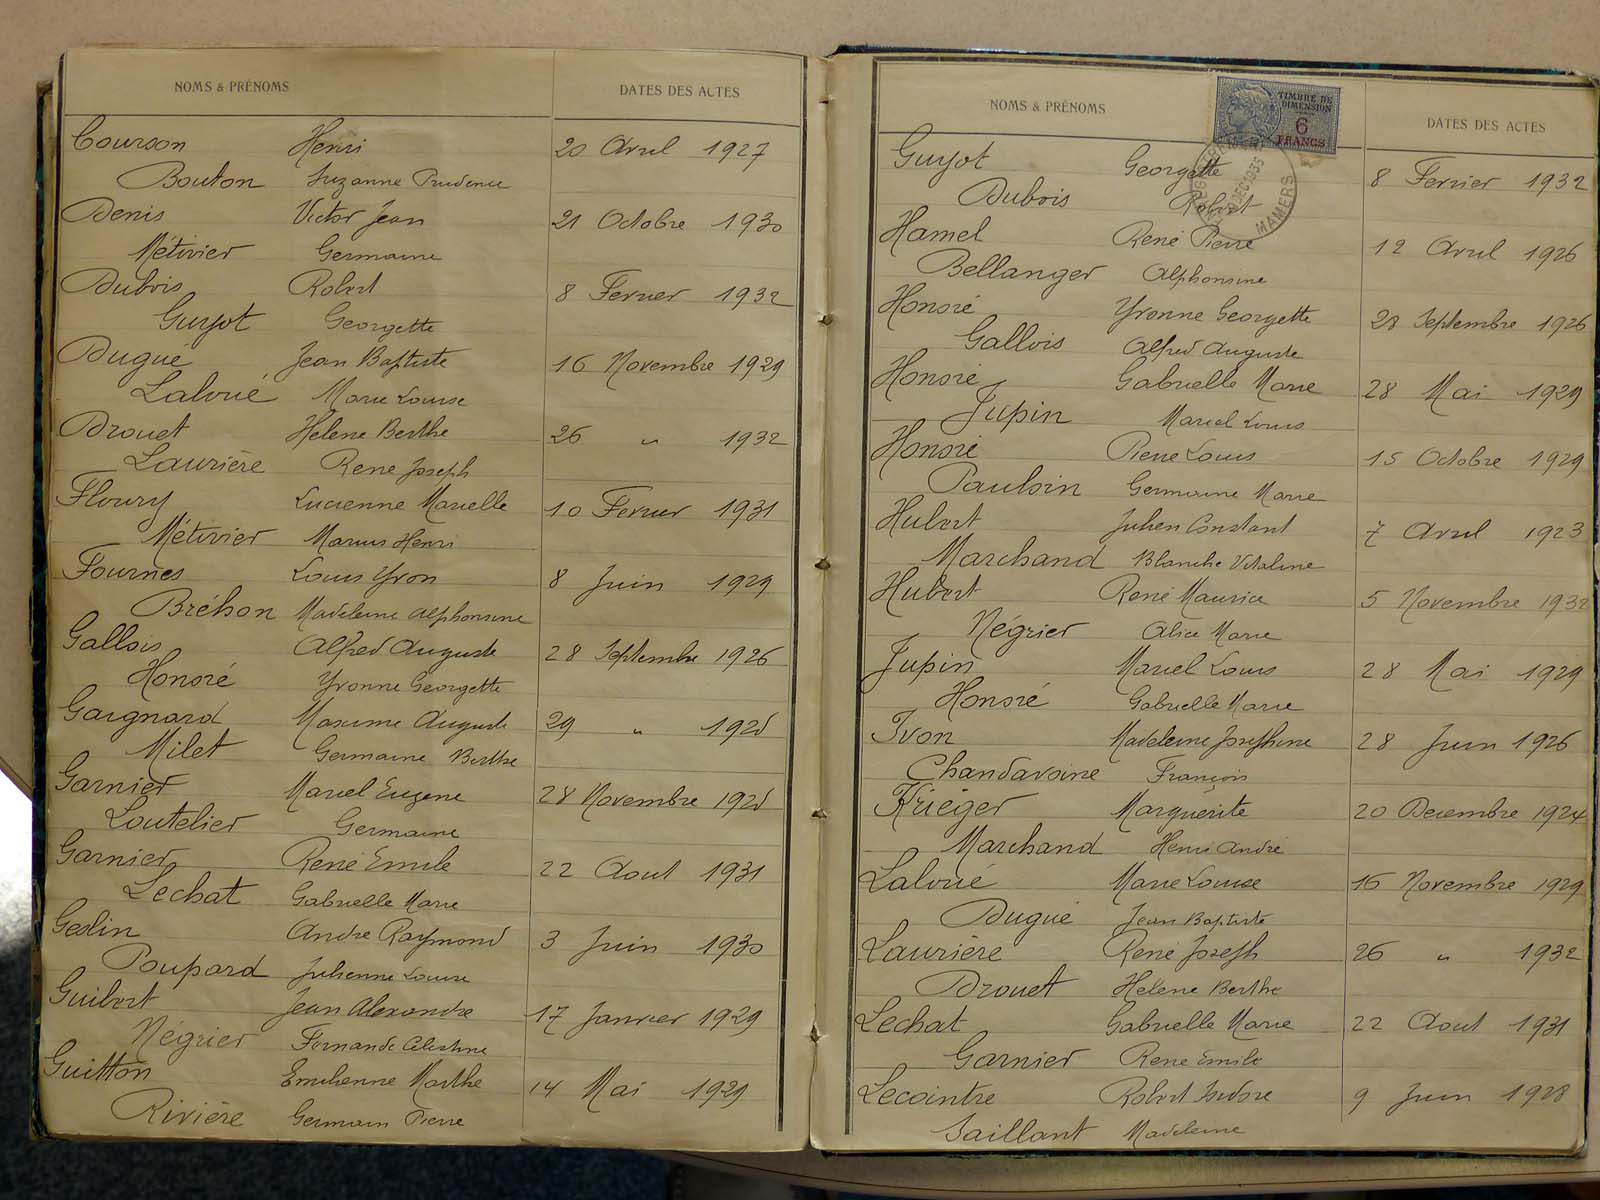 NOMS & PRÉNOMS DATES DES ACTES
Courson Henri 20 Avril 1927
Bouton Suzanne Prudence
Denis Victor Jean 21 Octobre 1930
Métivier Germaine
Dubois Robert 8 Fevrier 1932
Guyot Georgette
Dugué Jean Baptiste 16 Novembre 1929
Laloué Marie Louise
Drouet Helene Berthe 26 " 1932
Laurière René Joseph
Floury Lucienne Marcelle 10 Fevrier 1931
Métivier Marius Henri
Fournes Louis Yvon 8 Juin 1929
Bréhon Madeleine Alphonsine
Gallois Alfred Auguste 28 Septembre 1926
Honoré Yvonne Georgette
Gaignard Maxime Auguste 29 "
Milet Germaine Berthe
Garnier Marcel Eugene 28 Novembre
Loutelier Germaine
Garnier René Emile 22 Aout 1931
Lechat Gabrielle Marie
Geslin André Raymond 3 Juin 1930
Poupard Julienne Louise
Guibert Jean Alexandre 17 Janvier 1929
Négrier Fernande Celestine
Guitton Emilienne Marthe 14 Mai 1929
Rivière Germain Pierre
NOMS & PRÉNOMS DATES DES ACTES
TIMBRE DE
DIMENSION
6
FRANCS
MAMERS
Guyot Georgette 8 Fevrier 1932
Dubois Robert
Hamel René Pierre 12 Avril 1926
Bellanger Alphonsine
Honoré Yvonne Georgette 28 Septembre 1926
Gallois Alfred Auguste
Honoré Gabrielle Marie 28 Mai 1929
Jupin Marcel Louis
Honoré Pierre Louis 15 Octobre 1929
Pauloin Germaine Marie
Hubert Julien Constant 7 Avril 1923
Marchand Blanche Vitaline
Hubert René Maurice 5 Novembre 1932
Négrier Alice Marie
Jupin Marcel Louis 28 Mai 1929
Honoré Gabrielle Marie
Ivon Madeleine Josephine 28 Juin 1926
Chandavoine François
Kriéger Marguérite 20 Decembre 1924
Marchand Henri André
Laloué Marie Louise 16 Novembre 1929
Dugué Jean Baptiste
Laurière René Joseph 26 " 1932
Drouet Helene Berthe
Lechat Gabrielle Marie 22 Aout 1931
Garnier René Emile
Lecointre Robert Isidore 9 Juin 1928
Saillant Madeleine